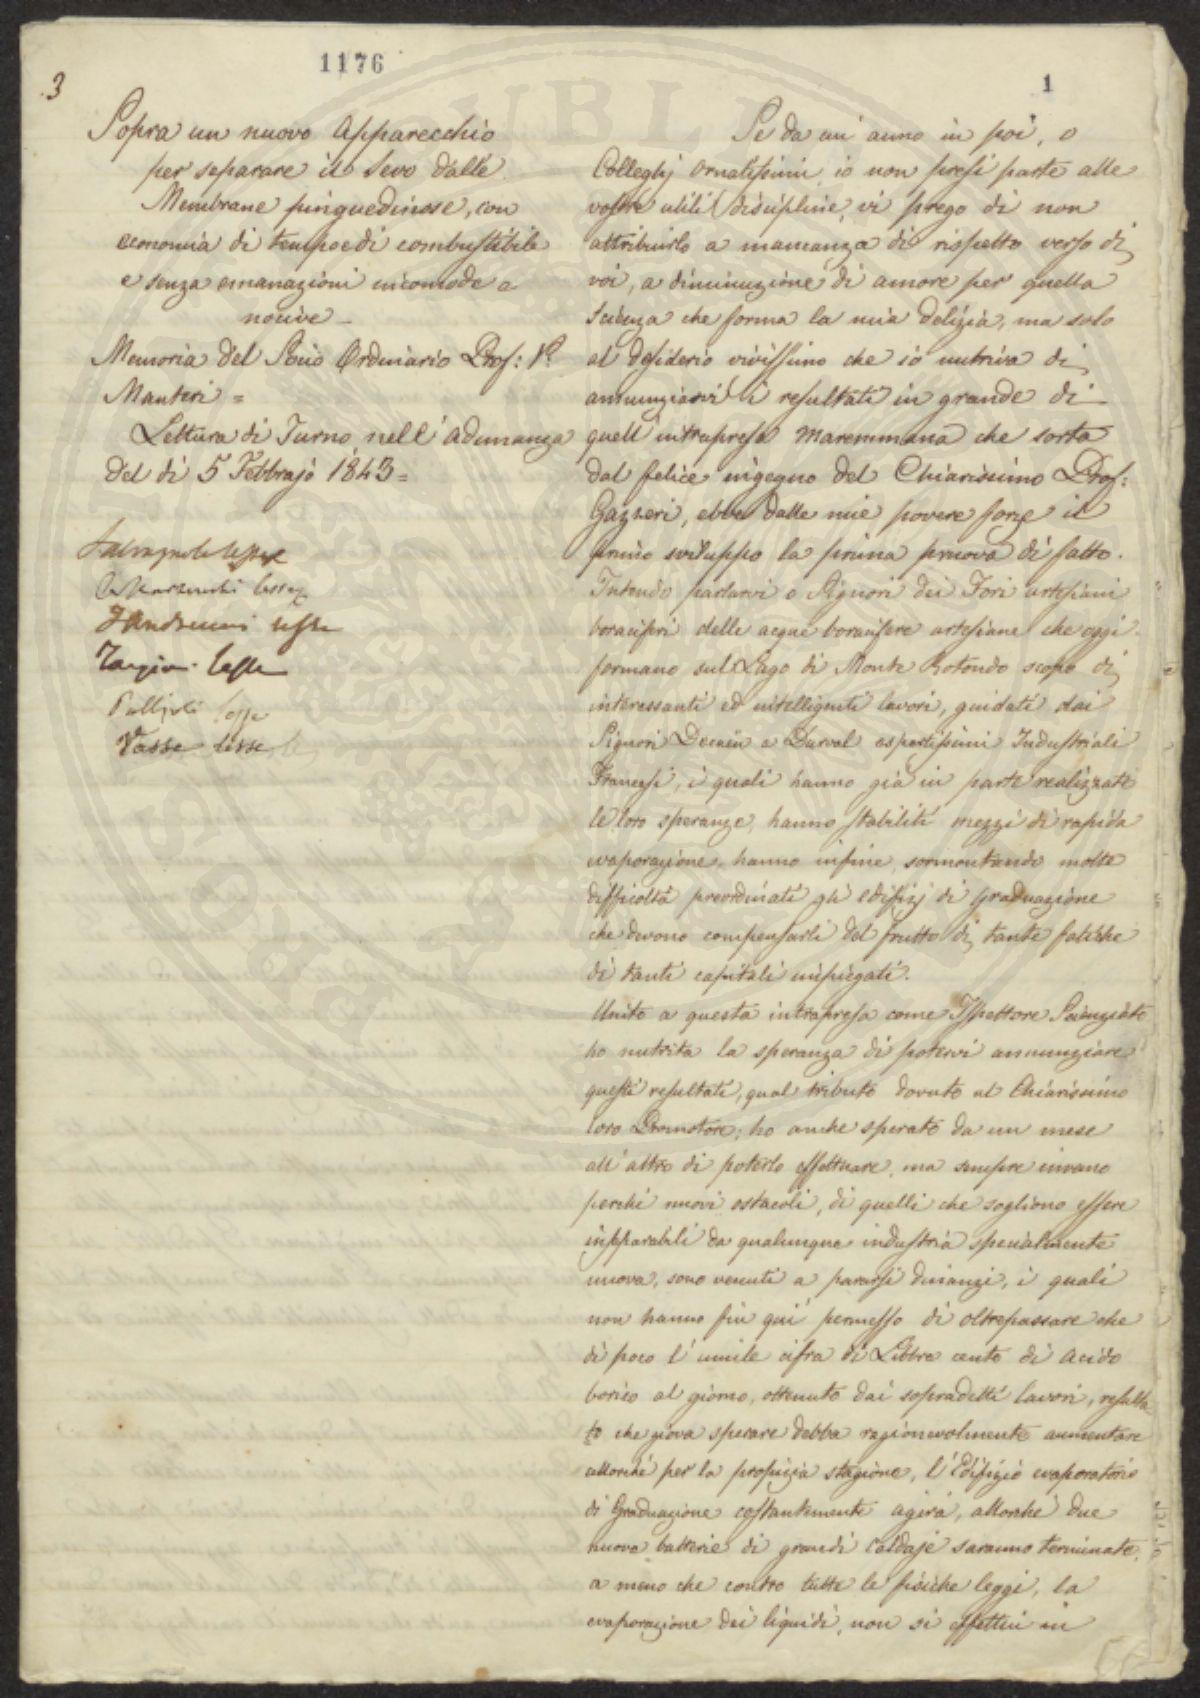 3
1176
1
Sopra un nuovo Apparecchio
per separare il Sevo dalle
Membrane pinguedinose, con
economia di tempo e di combustibile
e senza emanazioni incomode e
nocive _
Memoria del Socio Ordinario Prof:
Manteri =
Lettura di Turno nell' adunanza
del di 5 Febbrajo 1843 =
lesse
lesse
lesse
Targioni lesse
lesse
Vasse lesse
Se da un' anno in poi, o
Colleghj Ornatissimi, io non presi parte alle
vostre utili discipline, vi prego di non
attribuirlo a mancanza di rispetto verso di
voi, a diminuzione di amore per quella
Scienza che forma la mia delizia, ma solo
al desiderio vivissimo che io nutriva di
annunziarvi i resultati in grande di
quell' intrapresa Maremmana che sorta
dal felice ingegno del Chiarissimo Prof:
Gazzeri, ebbe dalle mie povere forze il
primo sviluppo la prima pruova di fatto.
Intendo parlarvi o Signori dei Fori artesiani
boraciferi delle acque boracifere artesiane che oggi
formano sul Lago di Monte Rotondo scopo di
interessanti ed intelligenti lavori, guidati dai
Signori e Durval espertissimi Industriali
Francesi, i quali hanno già in parte realizzate
le loro speranze, hanno stabiliti mezzi di rapida
evaporazione, hanno infine, sormontando molte
difficoltà preordinati gli edifizj di graduazione
che devono compensarli del frutto di tante fatiche
di tanti capitali impiegati.
Unito a questa intrapresa come Ispettore Scienziato
ho nutrita la speranza di potervi annunziare
questi resultati, qual tributo dovuto al Chiarissimo
loro Promotore; ho anche sperato da un mese
all' altro di poterlo effettuare, ma sempre invano
perchè nuovi ostacoli, di quelli che sogliono essere
inseparabili da qualunque industria specialmente
nuova, sono venuti a pararsi dinanzi, i quali
non hanno fin qui permesso di oltrepassare che
di poco l' umile cifra di Libbre cento di Acido
borico al giorno, ottenuto dai sopradetti lavori, resulta-
to che giova sperare debba ragionevolmente aumentare
allorchè per la propizia stagione, l' Edifizio evaporatorio
di Graduazione costantemente agirà, allorchè due
nuove batterie di grandi Caldaje saranno terminate,
a meno che contro tutte le fisiche leggi, la
evaporazione dei liquidi, non si effettui in